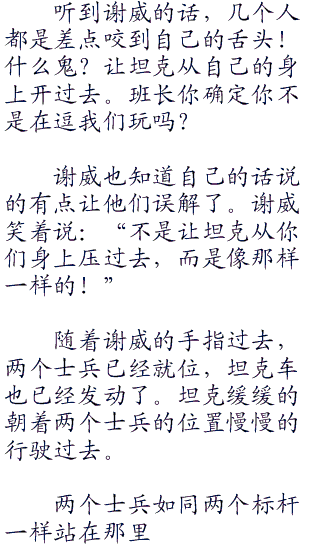 听到谢威的话，几个人
都是差点咬到自己的舌头！
什么鬼？让坦克从自己的身
上开过去。班长你确定你不
是在逗我们玩吗？
谢威也知道自己的话说
的有点让他们误解了。谢威
笑着说：“不是让坦克从你
们身上压过去，而是像那样
一样的！”
随着谢威的手指过去，
两个士兵已经就位，坦克车
也已经发动了。坦克缓缓的
朝着两个士兵的位置慢慢的
行驶过去。
两个士兵如同两个标杆
一样站在那里